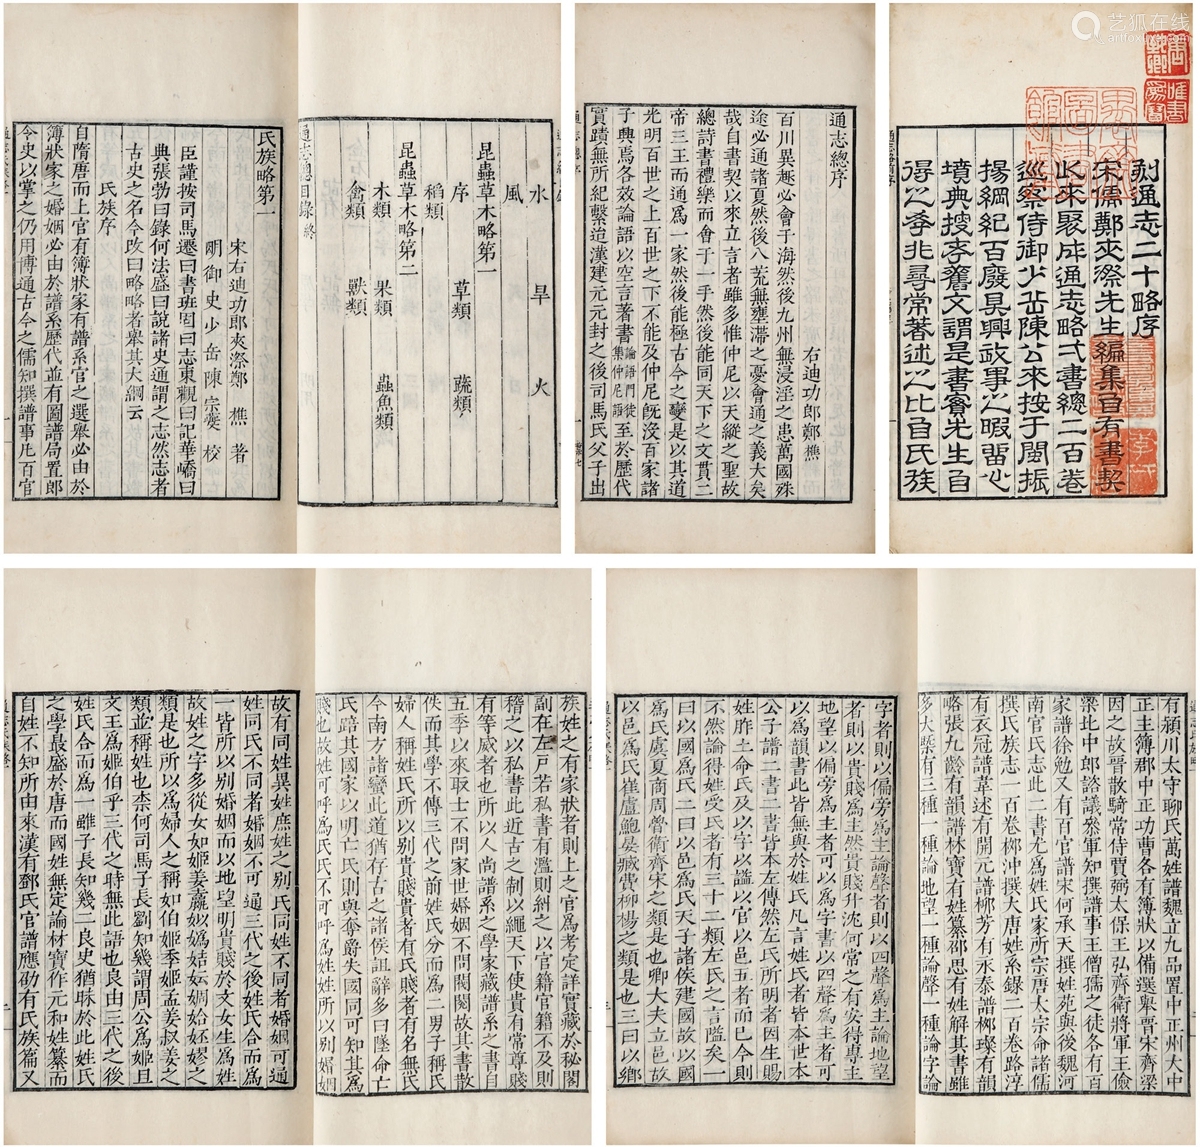 艺狐在线
artfoxlive.com
刻通志二十略序
宋儒鄭夾漈先生編集自有書契
以來聚成通志略弌書總二百卷
巡察侍御少岳陳公來按于閩振
揚綱紀百廢具興政事之暇畱心
墳典搜求舊文謂是書賓先生自
得之學非尋常著述之比自氏族
通志總序
右迪功郎鄭樵
百川異趨必會于海然後九州無浸淫之患萬國殊
途必通諸夏然後八荒無壅滯之憂會通之義大矣
哉自書契以來立言者雖多惟仲尼以天縱之聖故
總詩書禮樂而會于一手然後能同天下之文貫二
帝三王而通爲一家然後能極古今之變是以其道
光明百世之上百世之下不能及仲尼旣没百家諸
子興焉各效論語以空言著書論語門徒集仲尼語至於歷代
實蹟無所紀繫迨漢建元元封之後司馬氏父子出
水 旱 火
風
昆蟲草木略第一
序 草類 蔬類
稻類
昆蟲草木略第二
木類 果類 蟲魚類
禽類 獸類
通志總目錄終
氏族略第一
宋右迪功郎夾漈鄭樵著
明御史少岳陳宗夔校
臣謹按司馬遷曰書班固曰志東觀曰記華嶠曰
典張勃曰錄何法盛曰說諸史通謂之志然志者
古史之名今改曰略略者舉其大綱云
氏族序
自隋唐而上官有簿狀家有譜系官之選舉必由於
簿狀家之婚姻必由於譜系歷代並有圖譜局置郎
令史以掌之仍用博通古今之儒知撰譜事凡百官
族姓之有家狀者則上之官爲考定詳實藏於秘閣
副在左戸若私書有濫則糾之以官籍官籍不及則
稽之以私書此近古之制以繩天下使貴有常尊賤
有等威者也所以人尚譜系之學家藏譜系之書自
五季以來取士不問家世婚姻不問閥閱故其書散
佚而其學不傳三代之前姓氏分而爲二男子稱氏
婦人稱姓氏所以別貴賤貴者有氏賤者有名無氏
今南方諸蠻此道猶存古之諸侯詛辭多曰墜命亡
氏踣其國家以明亡氏則與奪爵失國同可知其爲
賤也故姓可呼爲氏氏不可呼爲姓姓所以別婚姻
故有同姓異姓庶姓之別氏同姓不同者婚姻可通
姓同氏不同者婚姻不可通三代之後姓氏合而爲
一皆所以別婚姻而以地望明貴賤於文女生爲姓
故姓之字多從女如姬姜嬴姒嬀姞妘婤姶嫪之
類是也所以爲婦人之稱如伯姬季姬孟姜叔姜之
類並稱姓也柰何司馬子長劉知幾謂周公爲姬旦
文王爲姬伯乎三代之時無此語也良由三代之後
姓氏合而爲一雖子長知幾二良史猶昧於此姓氏
之學最盛於唐而國姓無定論林寶作元和姓纂而
自姓不知所由來漢有鄧氏官譜應劭有氏族篇又
有潁川太守聊氏萬姓譜魏立九品置中正州大中
正主簿郡中正功曹各有簿狀以備選舉晉宋齊梁
因之故晉散騎常侍賈弼太保王弘齊衛將軍王儉
梁北中郎諮議參軍知撰譜事王僧孺之徒各有百
家譜徐勉又有百官譜宋何承天撰姓苑與後魏河
南官氏志此二書尤爲姓氏家所宗唐太宗命諸儒
撰氏族志一百卷柳沖撰大唐姓系錄二百卷路淳
有衣冠譜韋述有開元譜柳芳有永泰譜柳璨有韻
略張九齡有韻譜林寶有姓纂邵思有姓解其書雖
多大槩有三種一種論地望一種論聲一種論字論
字者則以偏旁爲主論聲者則以四聲爲主論地望
者則以貴賤爲主然貴賤升沈何常之有安得專主
地望以偏旁爲主者可以爲字書以四聲爲主者可
以爲韻書此皆無與於姓氏凡言姓氏者皆本世本
公子譜二書二書皆本左傳然左氏所明者因生賜
姓胙土命氏及以字以謚以官以邑五者而巳今則
不然論得姓受氏者有三十二類左氏之言隘矣一
曰以國爲氏二曰以邑爲氏天子諸侯建國故以國
爲氏虞夏商周魯衛齊宋之類是也卿大夫立邑故
以邑爲氏崔盧鮑晏臧費柳楊之類是也三曰以鄉